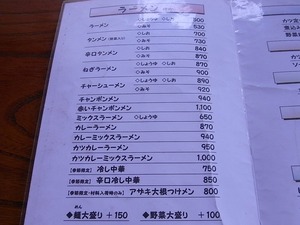 ラーメン
◇しょうゆ ◇しお 500
ラーメン ◇みそ 530
◇しお 700
タンメン ◇みそ 730
◇しお 840
辛口タンメン ◇みそ 870
◇しょうゆ ◇しお 870
ねぎラーメン ◇みそ 890
◇しょうゆ ◇しお 870
チャーシューメン ◇みそ 920
チャンポンメン 940
赤いチャンポンメン 1,000
ミックスラーメン ◇しょうゆ 650
カレーラーメン 870
カレーミックスラーメン 940
カツカレーラーメン 950
カツカレーミックスラーメン 1,100
【季節限定】冷し中華 750
【季節限定】辛口冷し中華 850
【季節限定・材料入荷時のみ】アサキ大根つけメン 800
めん
◆麺大盛り +150 ◆野菜大盛り +100